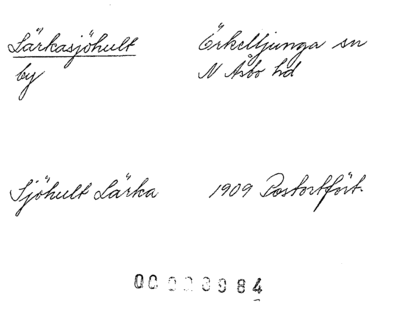 Lärkasjöhult Örkelljunga sn
by N Åsbo hd
Sjöhult Lärka 1909 Postortfört.